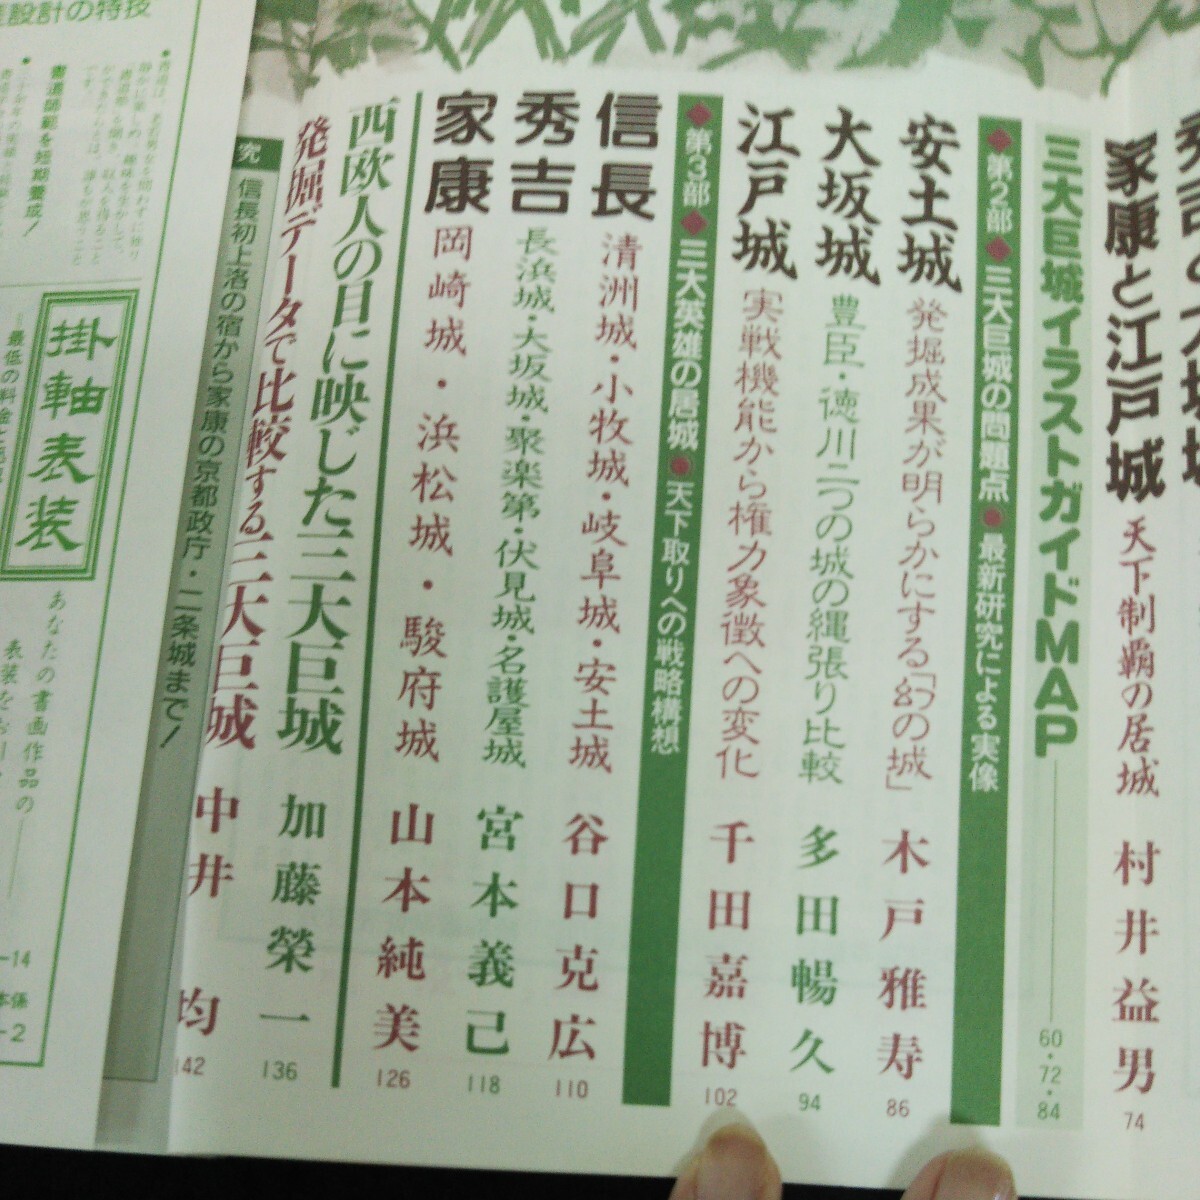 家康と江戸城 天下制覇の居城 村井益男 74
三大巨城イラストガイドMAP 60・72・84
◆第2部◆三大巨城の問題点●最新研究による実像
安土城 発掘成果が明らかにする「幻の城」 木戸雅寿 86
大坂城 豊臣・徳川二つの城の縄張り比較 多田暢久 94
江戸城 実戦機能から権力象徴への変化 千田嘉博 102
◆第3部◆三大英雄の居城●天下取りへの戦略構想
信長 清洲城・小牧城・岐阜城・安土城 谷口克広 110
秀吉 長浜城・大坂城・聚楽第・伏見城・名護屋城 宮本義己 118
家康 岡崎城・浜松城・駿府城 山本純美 126
西欧人の目に映じた三大巨城 加藤榮一 136
発掘データで比較する三大巨城 中井均 142
究 信長初上洛の宿から家康の京都政庁・二条城まで!
設計の特技
書道師範を短期養成!
掛軸表装
あなたの書画作品の